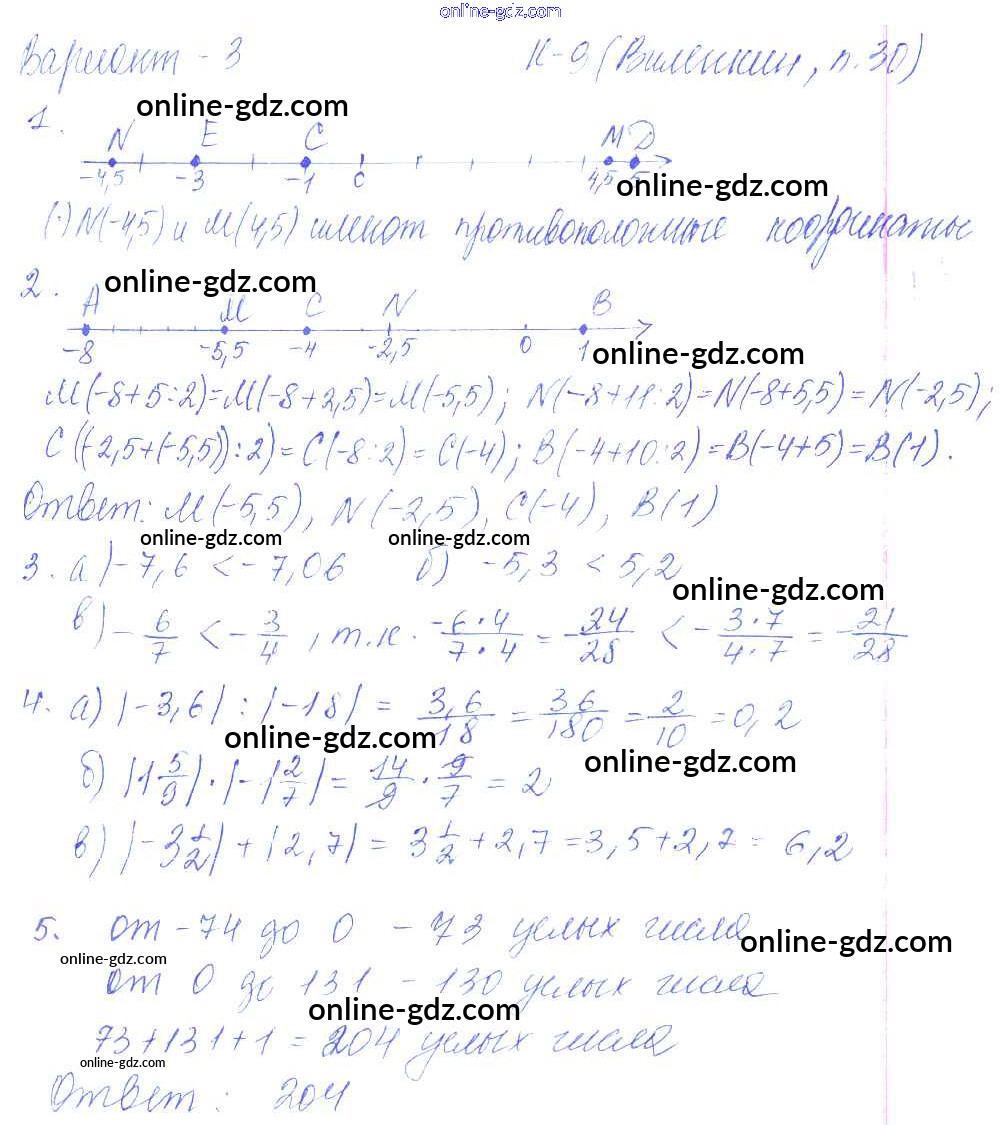 online-gdz.com
Вариант - 3 К-9 (Виленкин, п.30)
online-gdz.com
1. N E C M D
-4,5 -3 -1 0 4,5 5
online-gdz.com
(·) N(-4,5) и M(4,5) имеют противоположные координаты
online-gdz.com
2. A M C N B
-8 -5,5 -4 -2,5 0 1
online-gdz.com
M(-8+5:2)=M(-8+2,5)=M(-5,5); N(-8+11:2)=N(-8+5,5)=N(-2,5);
C((-2,5+(-5,5)):2)=C(-8:2)=C(-4); B(-4+10:2)=B(-4+5)=B(1).
Ответ: M(-5,5), N(-2,5), C(-4), B(1)
online-gdz.com online-gdz.com
3. а) -7,6 < -7,06 б) -5,3 < 5,2
online-gdz.com
в) -6/7 < -3/4, т.к. -6·4/7·4 = -24/28 < -3·7/4·7 = -21/28
4. а) |-3,6| : |-18| = 3,6/18 = 36/180 = 2/10 = 0,2
online-gdz.com
online-gdz.com
б) |1 5/9| · |-1 2/7| = 14/9 · 9/7 = 2
в) |-3 1/2| + |2,7| = 3 1/2 + 2,7 = 3,5 + 2,7 = 6,2
5. от -74 до 0 - 73 целых числа
online-gdz.com
online-gdz.com
от 0 до 131 - 130 целых числа
online-gdz.com
73+131+1 = 204 целых числа
online-gdz.com
Ответ: 204